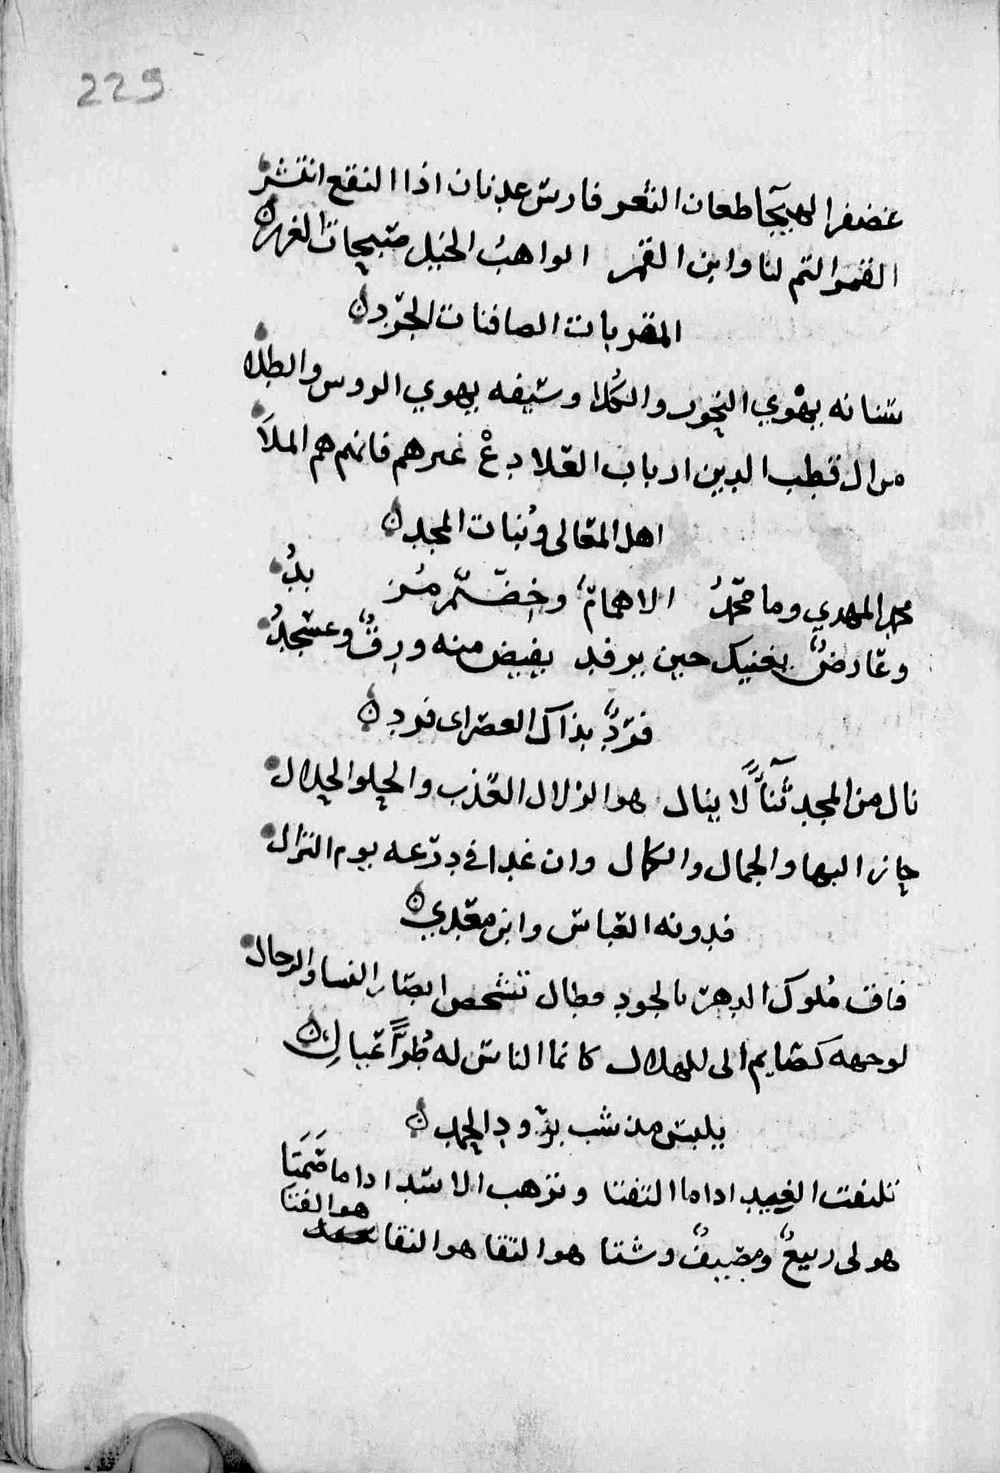 229
غضنفر الهيجا طعان الثغر فارس عدنان اذا النقع انتشر
القمر التم لنا وابن القمر الواهب الخيل صبيحات الغرر
المقربات الصافنات الجرد
سنانه يهوي النحور والكلا وسيفه يهوي الروس والطلا
من ال قطب الدين ارباب العلا دع غيرهم فانهم هم الملا
اهل المعالي وبنات المجد
محمد المهدي وما محمدُ الا همامٌ وخضمّ مزبدُ
وعارضٌ يغنيك حين يرفد يفيض منه ورقٌ وعسجدُ
فردٌ بذاك العصر اي فرد
نال من المجد ثناً لا ينال هو الزلال العذب والحلو الحلال
حاز البها والجمال والكمال وان غدا في درعه يوم النزال
فدونه العباس وابن معدي
فاق ملوك الدهر بالجود وطال تشخص ابصار النسا والرجال
لوجهه كصايم الى للهلال كانما الناس له طرًّا عيال
يلبس من شب برود الحمد
تلتفت الغيد اذا ما التفتا وترهب الاسد اذا ما صمتا
هو لي ربيعٌ ومصيفٌ وشتا هو التقا هو النقا هو الفتا